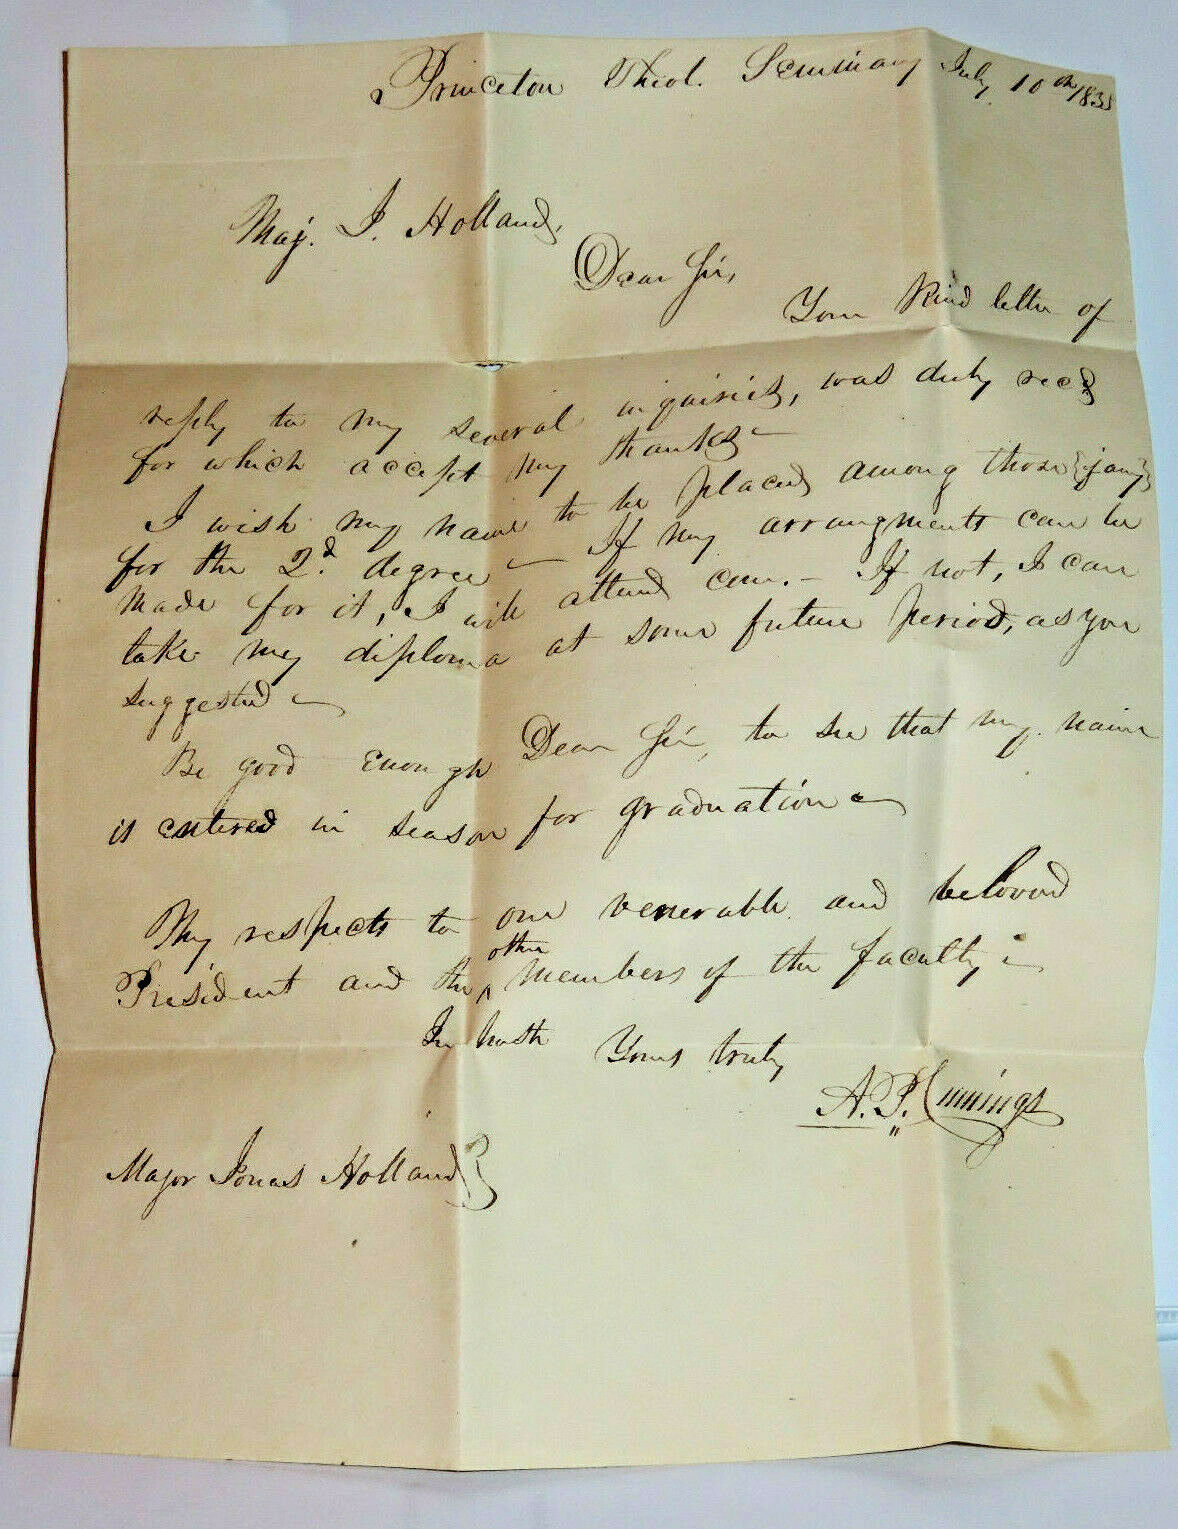 Princeton Theol. Seminary July 10th 1838
Maj. J. Holland,
Dear Sir,
Your kind letter of
reply to my several inquiries, was duly recd
for which accept my thanks –
I wish my name to be placed among those {if any}
for the 2d. degree – If my arrangments can be
made for it, I will attend com. – If not, I can
take my diploma at some future period, as you
suggested –
Be good enough Dear Sir, to see that my name
is entered in season for graduation –
My respects to our venerable and beloved
President and the ^other members of the faculty –
In haste
Yours truly
A. P. Cumings
Major Jonas Holland}